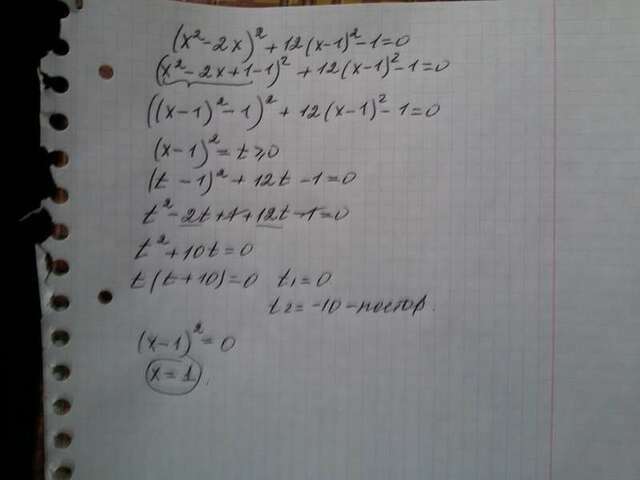 (x²-2x)²+12(x-1)²-1=0
(x²-2x+1-1)²+12(x-1)²-1=0
((x-1)²-1)²+12(x-1)²-1=0
(x-1)²=t⩾0
(t-1)²+12t-1=0
t²-2t+1+12t-1=0
t²+10t=0
t(t+10)=0 t₁=0
t₂=-10-постор.
(x-1)²=0
x=1.